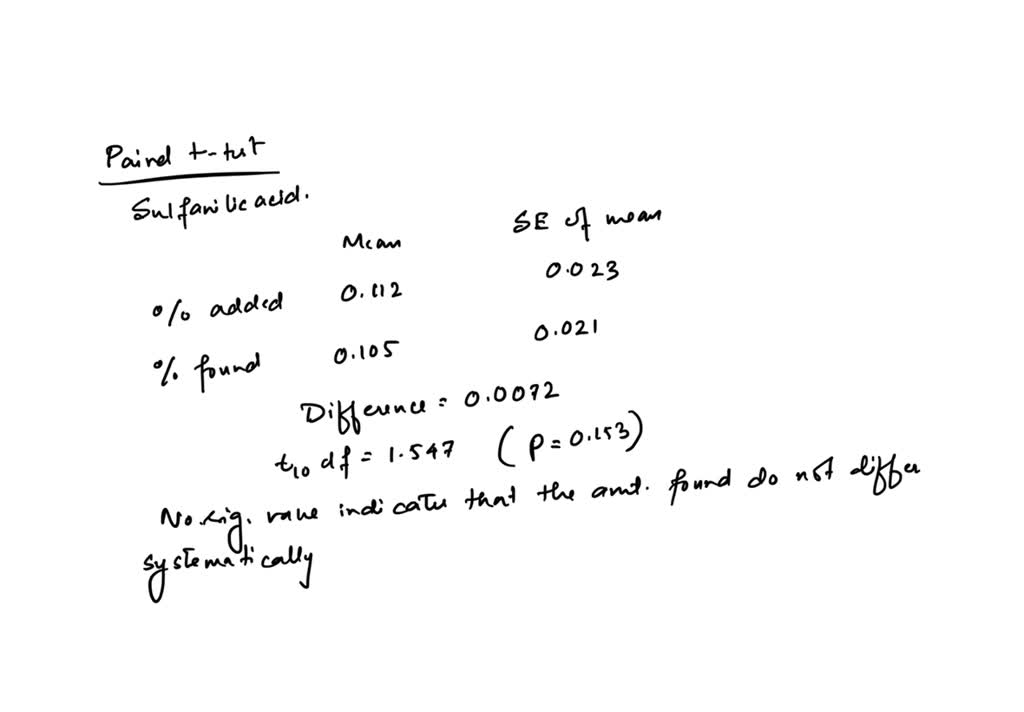 Paired t-test
Sulfanilic acid.
Mean SE of mean
% added 0.112 0.023
% found 0.105 0.021
Difference = 0.0072
t10 df = 1.547 (P=0.153)
No. sig. value indicates that the amt. found do not differ
systematically